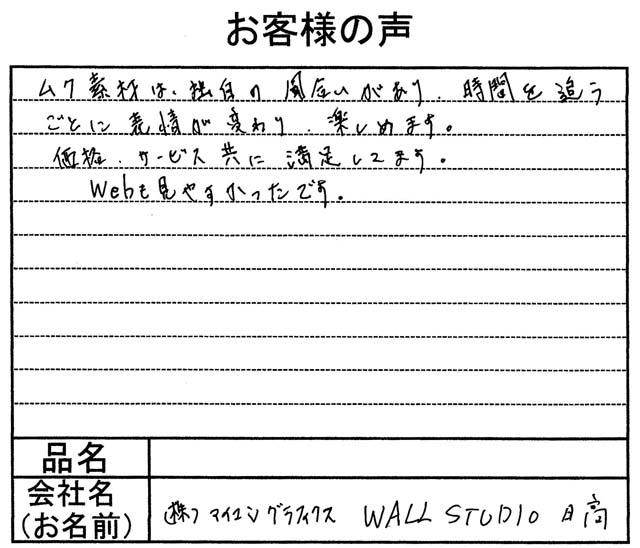 お客様の声
ムク素材は、独自の風合いがあり、時間を追う
ごとに表情が変わり、楽しめます。
価格、サービス共に満足してます。
Webも見やすかったです。
品名
会社名
(お名前)
(株)マイコングラフィクス WALL STUDIO 日高